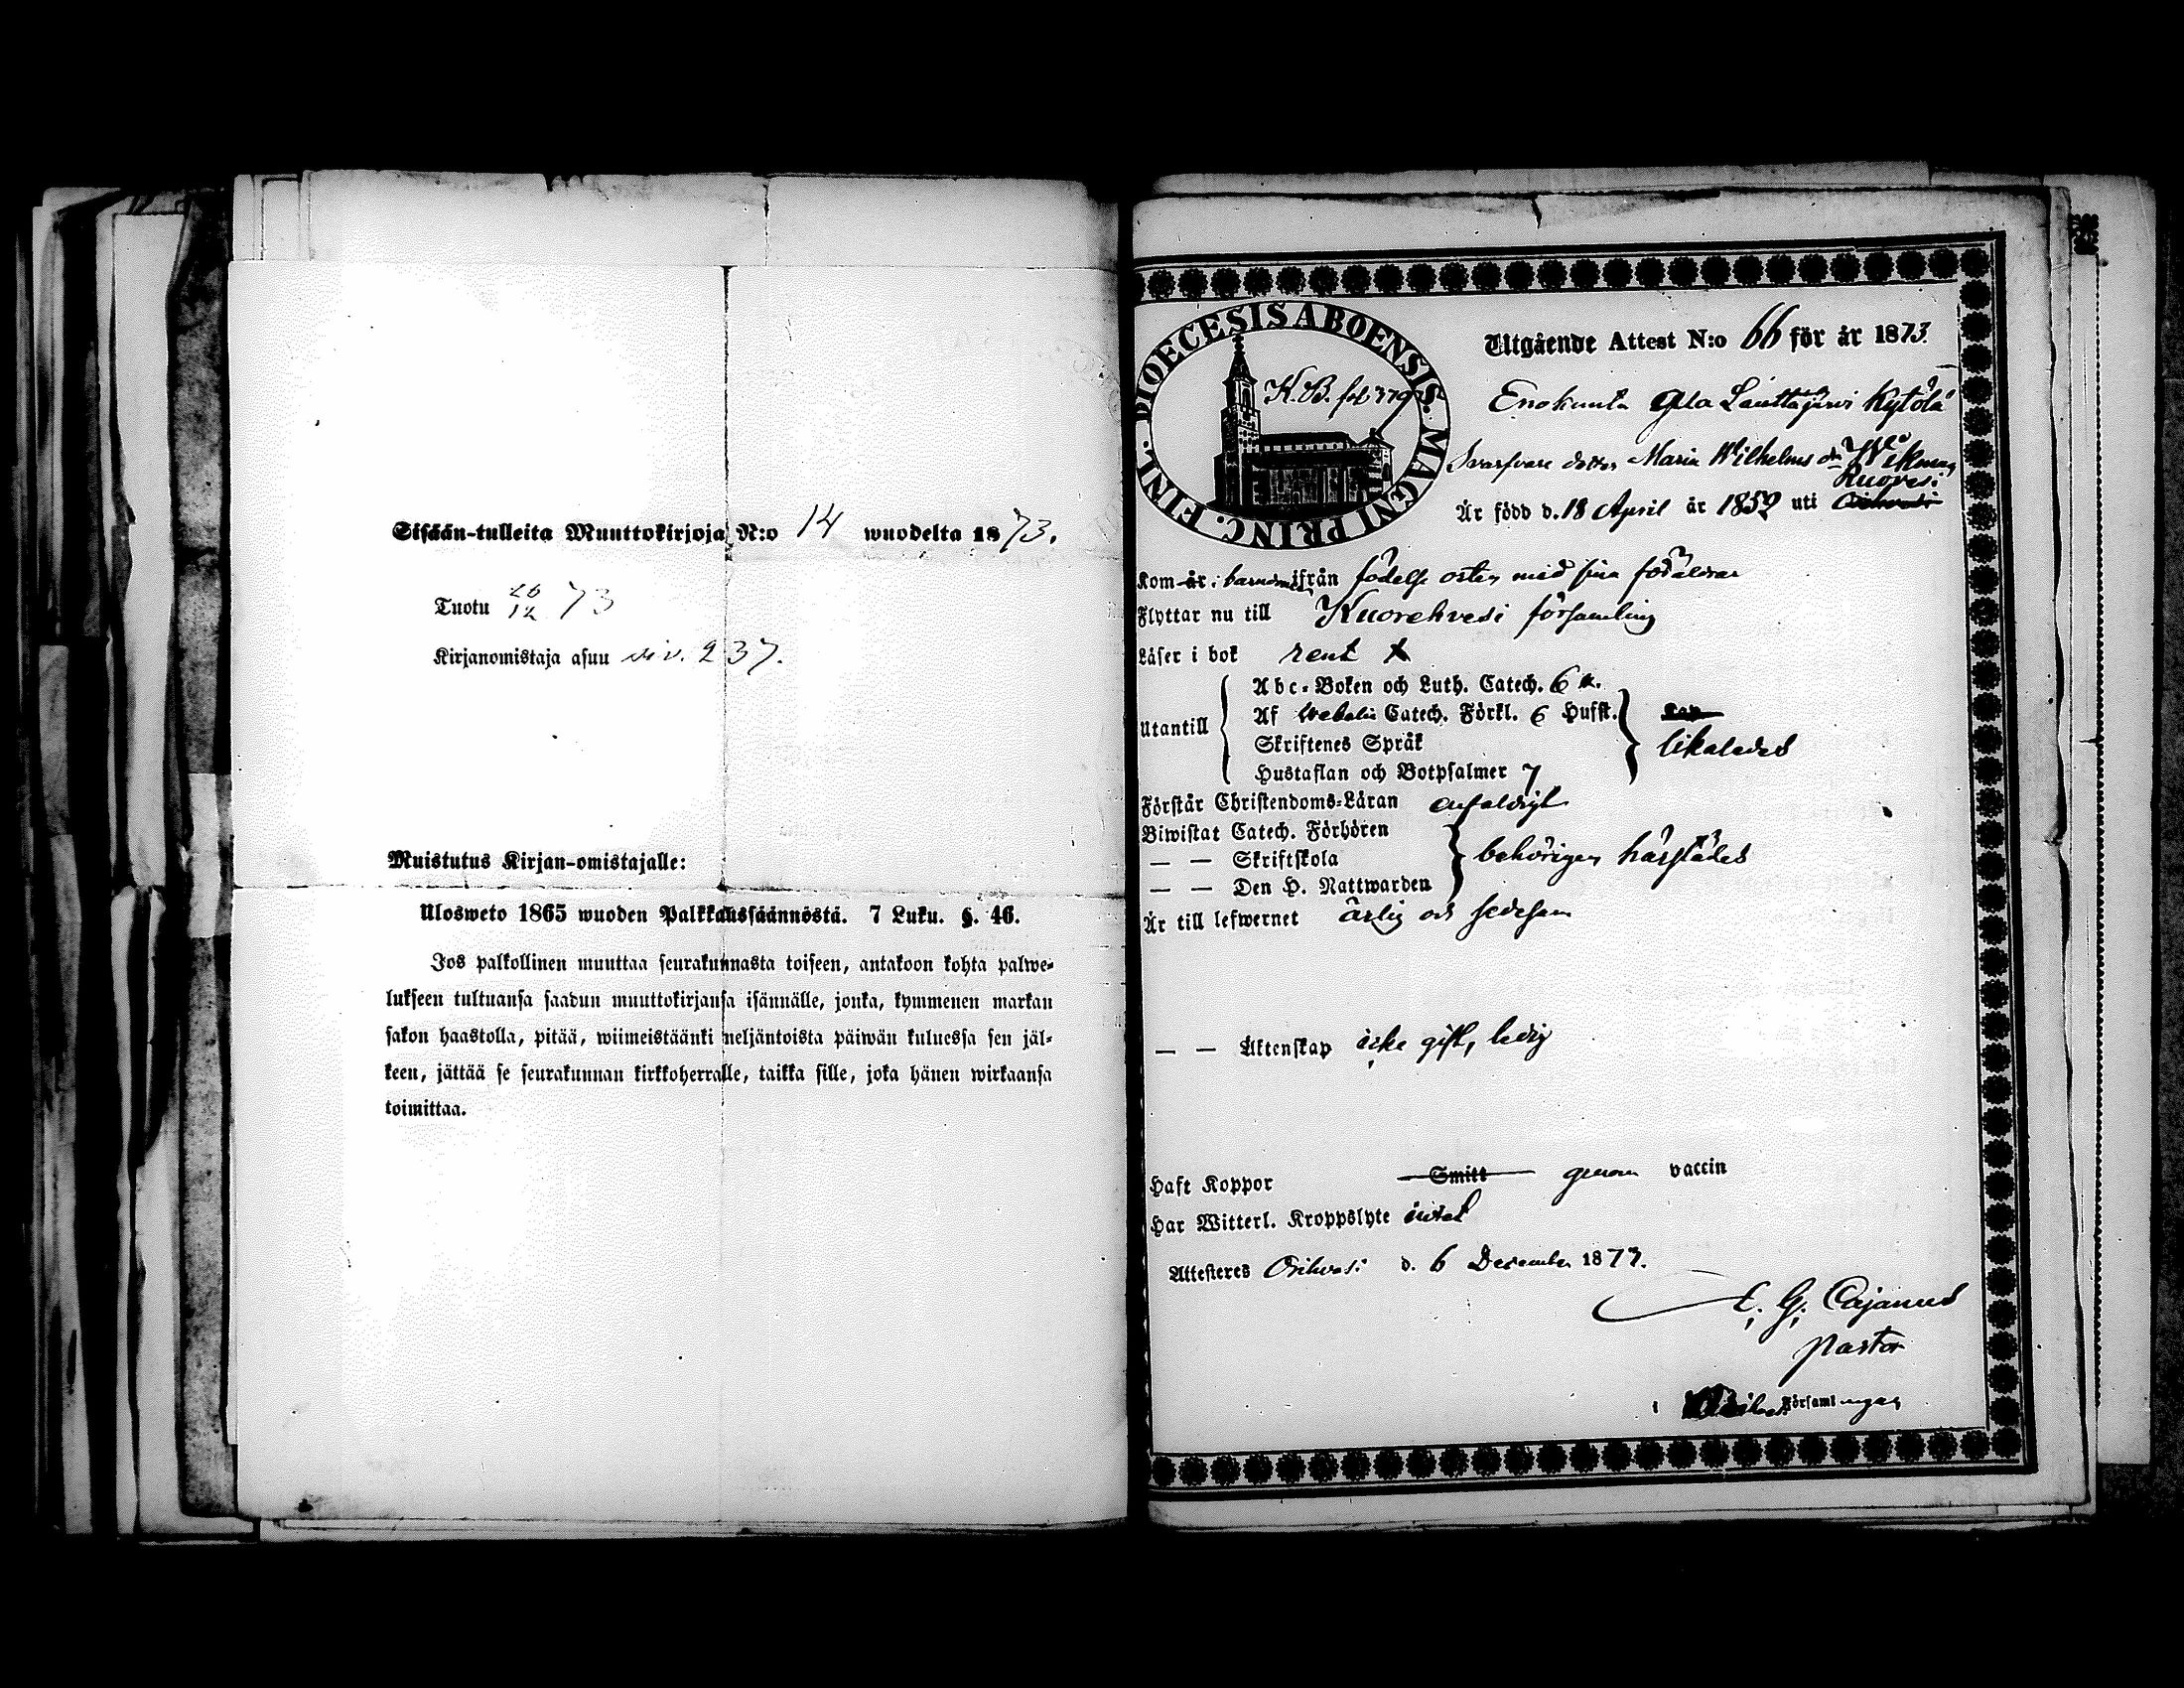 Sisään-tulleita Muuttokirjoja N:o 14 wuodelta 1873.
Tuotu 26/12 73
Kirjanomistaja asuu siv. 237.
Muistutus Kirjan-omistajalle:
Ulosweto 1865 wuoden Palkkaussäännöstä. 7 Luku. §. 46.
Jos palkollinen muuttaa seurakunnasta toiseen, antakoon kohta palwe-
lukseen tultuansa saadun muuttokirjansa isännälle, jonka, kymmenen markan
sakon haastolla, pitää, wiimeistäänki neljäntoista päiwän kuluessa sen jäl-
keen, jättää se seurakunnan kirkkoherralle, taikka sille, joka hänen wirkaansa
toimittaa.
DIOECESIS ABOENSIS. MAGNI PRINC. FINL.
K.B. fol 379
Utgående Attest N:o 66 för år 1873.
Enokunta Lauttajärvi Kytölä
Svarfvare dotter Maria Wilhelms dr Wikman
Kuorevesi
Är född d. 18 April år 1852 uti Orihvesi
Kom år i barndom ifrån födelse orten med sina föräldrar
Flyttar nu till Kuorehvesi församling
Läser i bok rent x
Utantill
Abc-Boken och Luth. Catech. 6 st.
Af Webelii Catech. Förkl. 6 Hufst.
Skriftenes Språk
Hustaflan och Botpsalmer 7
likaledes
Förstår Christendoms-Läran enfaldigt
Biwistat Catech. Förhören
— — Skriftskola
— — Den H. Nattwarden
behörigen härstädes
Är till lefwernet ärlig och sedesam
— — Äktenskap icke gift, ledig
Haft Koppor Smitt genom vaccin
Har Witterl. Kroppslyte intet
Attesteres Orihvesi d. 6 December 1873.
E. G. Cajanus
Pastor
i Orihvesi Församlingen